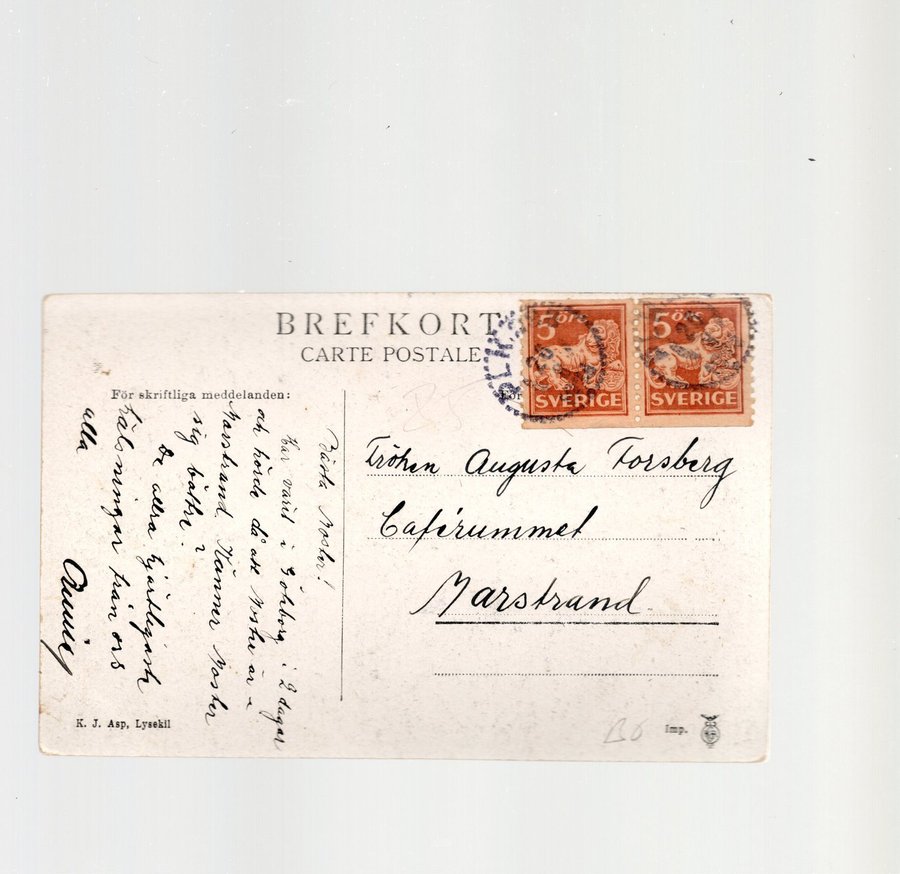 BREFKORT
CARTE POSTALE
5 ÖRE
SVERIGE
5 ÖRE
SVERIGE
För skriftliga meddelanden:
Bästa Moster!
Har varit i Göteborg i 2 dagar
och hörde då att Moster är i
Marstrand. Känner Moster
sig bättre?
De allra hjärtligaste
hälsningar från oss
alla
Fröken Augusta Forsberg
Caférummet
Marstrand.
K. J. Asp, Lysekil
Imp.